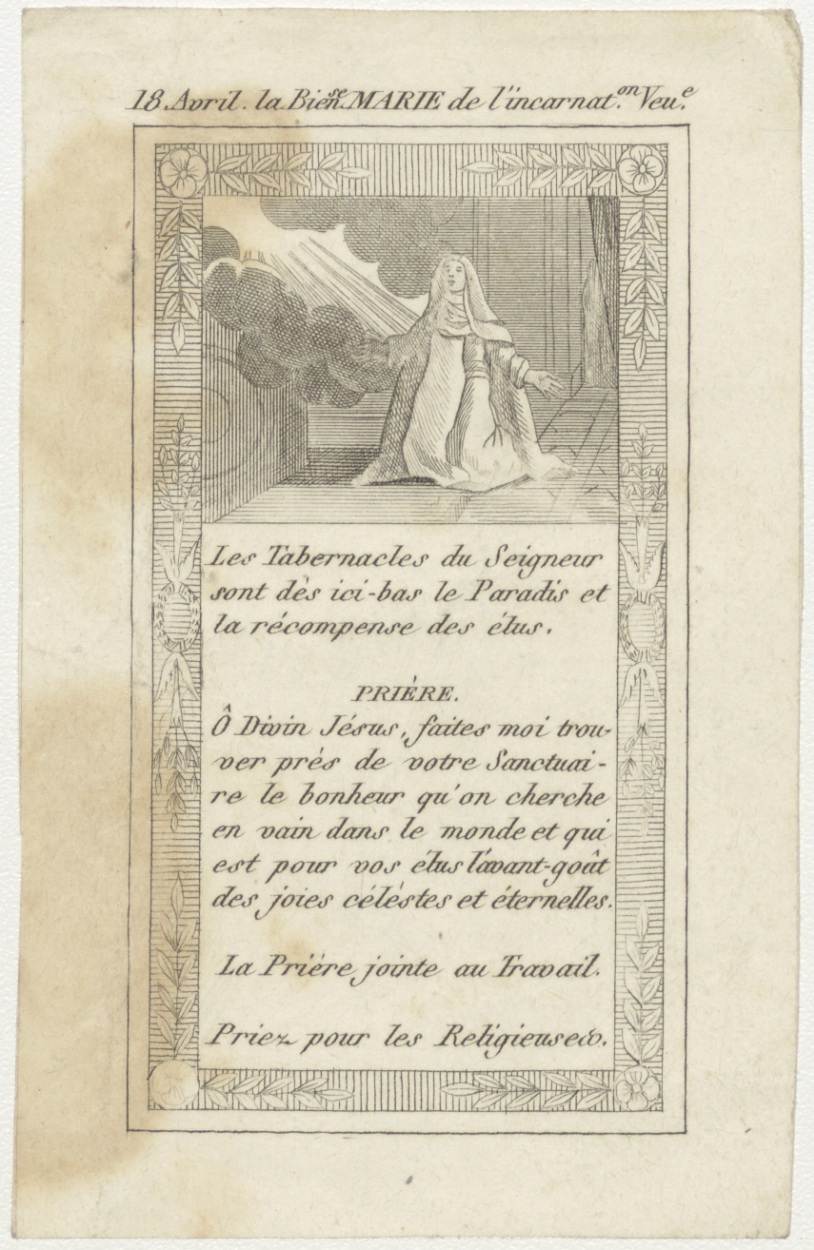 18. Avril. la Bien.se MARIE de l'incarnat.on Veu.e
Les Tabernacles du Seigneur
sont dès ici-bas le Paradis et
la récompense des élus.
PRIÈRE.
Ô Divin Jésus, faites moi trou-
ver prés de votre Sanctuai-
re le bonheur qu'on cherche
en vain dans le monde et qui
est pour vos élus l'avant-goût
des joies célèstes et éternelles.
La Prière jointe au Travail.
Priez pour les Religieuses.